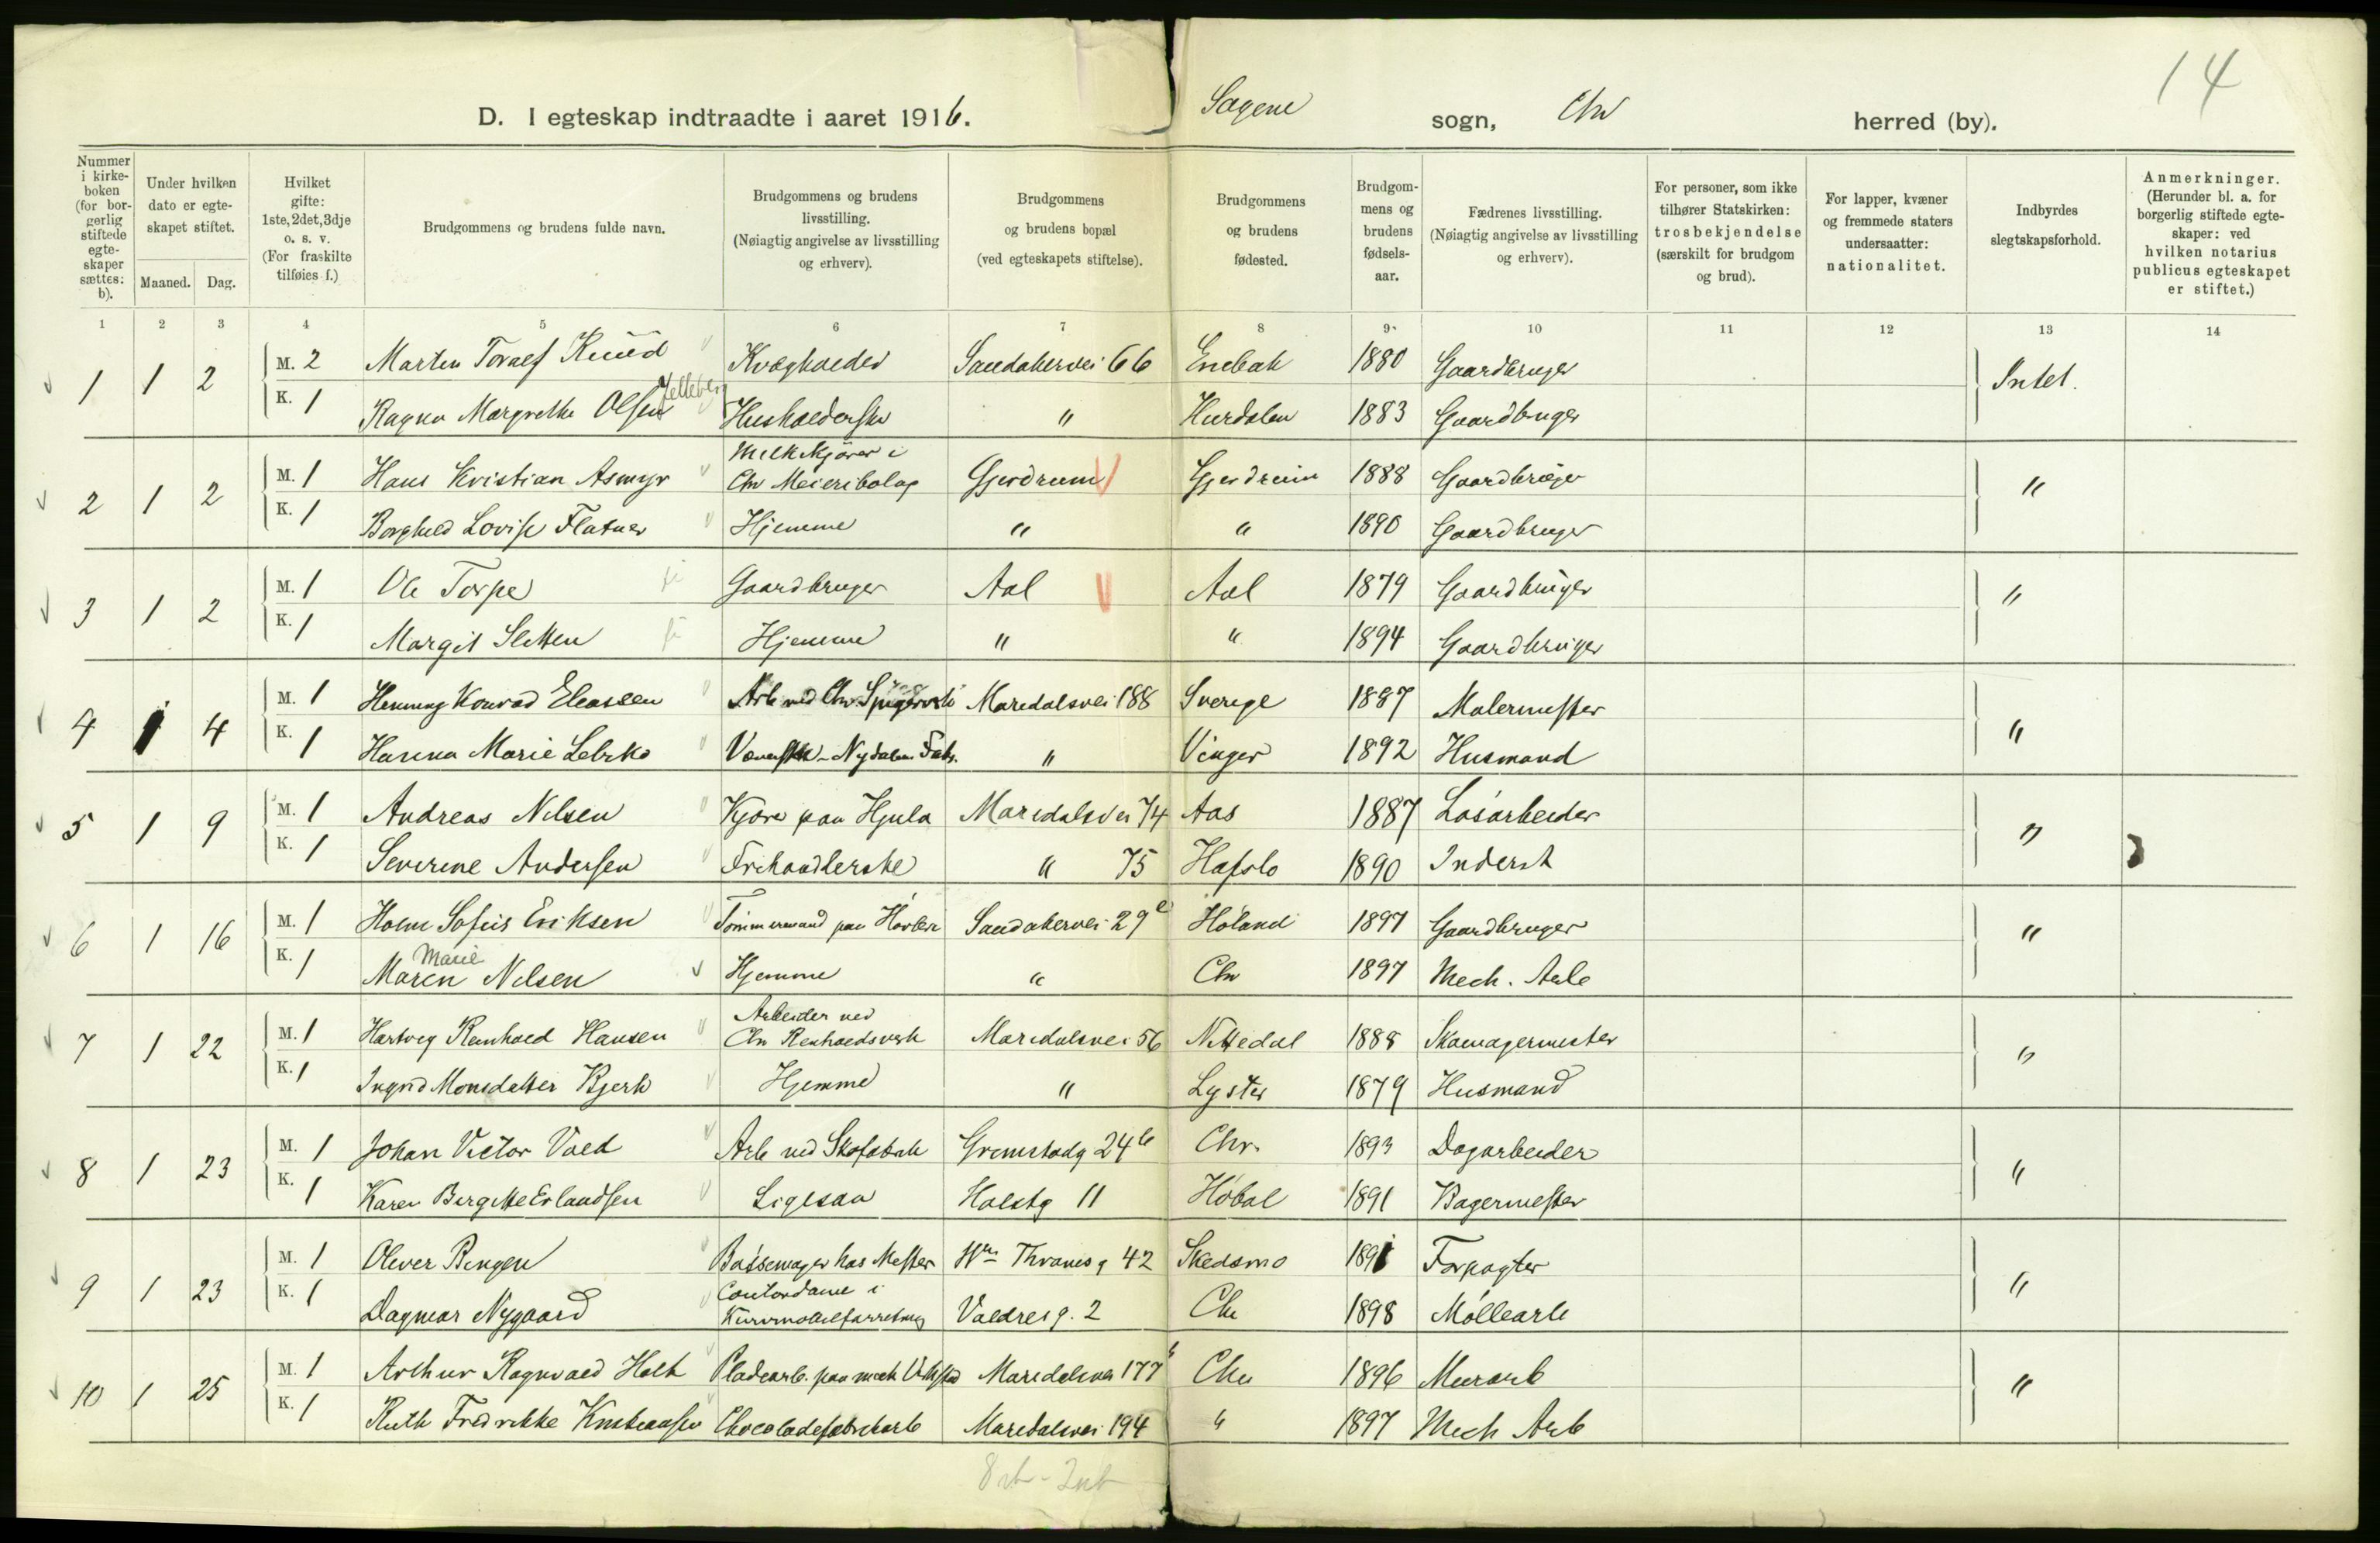 14
D. I egteskap indtraadte i aaret 1916. Sagene sogn, Chr herred (by).
Nummer i kirke-boken (for bor-gerlig stiftede egte-skaper sættes: b).
Under hvilken dato er egte-skapet stiftet.
Maaned. Dag.
Hvilket gifte: 1ste, 2det, 3dje o. s. v. (For fraskilte tilføies f.)
Brudgommens og brudens fulde navn.
Brudgommens og brudens livsstilling. (Nøiagtig angivelse av livsstilling og erhverv).
Brudgommens og brudens bopæl (ved egteskapets stiftelse).
Brudgommens og brudens fødested.
Brudgom-mens og brudens fødsels-aar.
Fædrenes livsstilling. (Nøiagtig angivelse av livsstilling og erhverv).
For personer, som ikke tilhører Statskirken: trosbekjendelse (særskilt for brudgom og brud).
For lapper, kvæner og fremmede staters undersaatter: nationalitet.
Indbyrdes slegtskapsforhold.
Anmerkninger. (Herunder bl. a. for borgerlig stiftede egte-skaper: ved hvilken notarius publicus egteskapet er stiftet.)
1 2 3 4 5 6 7 8 9 10 11 12 13 14
1 1 2 M. 2 Marten Toralf Kuud Kvæghandler Sandakervei 66 Enebak 1880 Gaardbruger Intet.
K. 1 Ragna Margrethe Olsen Husholderske " Hurdalen 1883 Gaardbruger
2 1 2 M. 1 Hans Kristian Asmyr Melkekjører i Chr Meieribolag Gjerdrum Gjerdrum 1888 Gaardbruger "
K. 1 Borghild Lovise Flatner Hjemme " " 1890 Gaardbruger
3 1 2 M. 1 Ole Torpe Gaardbruger Aal Aal 1879 Gaardbruger "
K. 1 Margit Sletten Hjemme " " 1894 Gaardbruger
4 1 4 M. 1 Henning Konrad Eleassen Arb ved Chr. Spigerverk Maridalsvei 188 Sverige 1887 Malermester "
K. 1 Hanna Marie Lebiko Væverske - Nydalens Fabr. " Vinger 1892 Husmand
5 1 9 M. 1 Andreas Nilsen Kjører paa Hjula Maridalsvei 74 Aas 1887 Løsarbeider "
K. 1 Severine Andersen Frihandlerske " 75 Hafslo 1890 Inderst
6 1 16 M. 1 Holm Sofus Eriksen Tømmermand paa Høvleri Sandakervei 29 e Høland 1897 Gaardbruger "
K. 1 Maren Marie Nilsen Hjemme " Chr 1897 Mech. Arb
7 1 22 M. 1 Hartvig Reinhold Hansen Arbeider ved Chr Renholdsverk Maridalsvei 56 Nittedal 1888 Skomagermester "
K. 1 Ingrid Monsdatter Bjerk Hjemme " Lyster 1879 Husmand
8 1 23 M. 1 Johan Victor Vold Arb ved Skofabrik Grimstadg 24 b Chr. 1893 Dagarbeider "
K. 1 Karen Birgitte Erlandsen Ligesaa Holstg 11 Høbøl 1891 Bagermester
9 1 23 M. 1 Oliver Bingen Bøssemager hos Mester Wm Thranesg 42 Skedsmo 1891 Forpagter "
K. 1 Dagmar Nygaard Contordame i Kurvmøbelforretning Valdresg. 2 Chr 1898 Møllearb
10 1 25 M. 1 Arthur Ragnvald Holt Pladearb. paa mek Verksted Maridalsvei 177 b Chr 1896 Murarb "
K. 1 Ruth Fredrikke Kristiansen Chocoladefabrikarb Maridalsvei 194 " 1897 Mech Arb